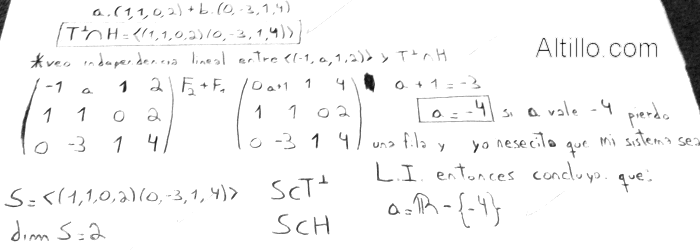 a.(1,1,0,2)+b.(0,-3,1,4)
T⊥∩H=<(1,1,0,2)(0,-3,1,4)>
*veo independencia lineal entre <(-1,a,1,2)> y T⊥∩H
Altillo.com
(-1 a 1 2) F2+F1 (0 a+1 1 4) a+1=-3
(1 1 0 2) (1 1 0 2) a=-4 si a vale -4 pierdo
(0 -3 1 4) (0 -3 1 4) una fila y yo nesecito que mi sistema sea
L.I. entonces concluyo que:
S=<(1,1,0,2)(0,-3,1,4)> S⊂T⊥ a=ℝ-{-4}
dim S=2 S⊂H